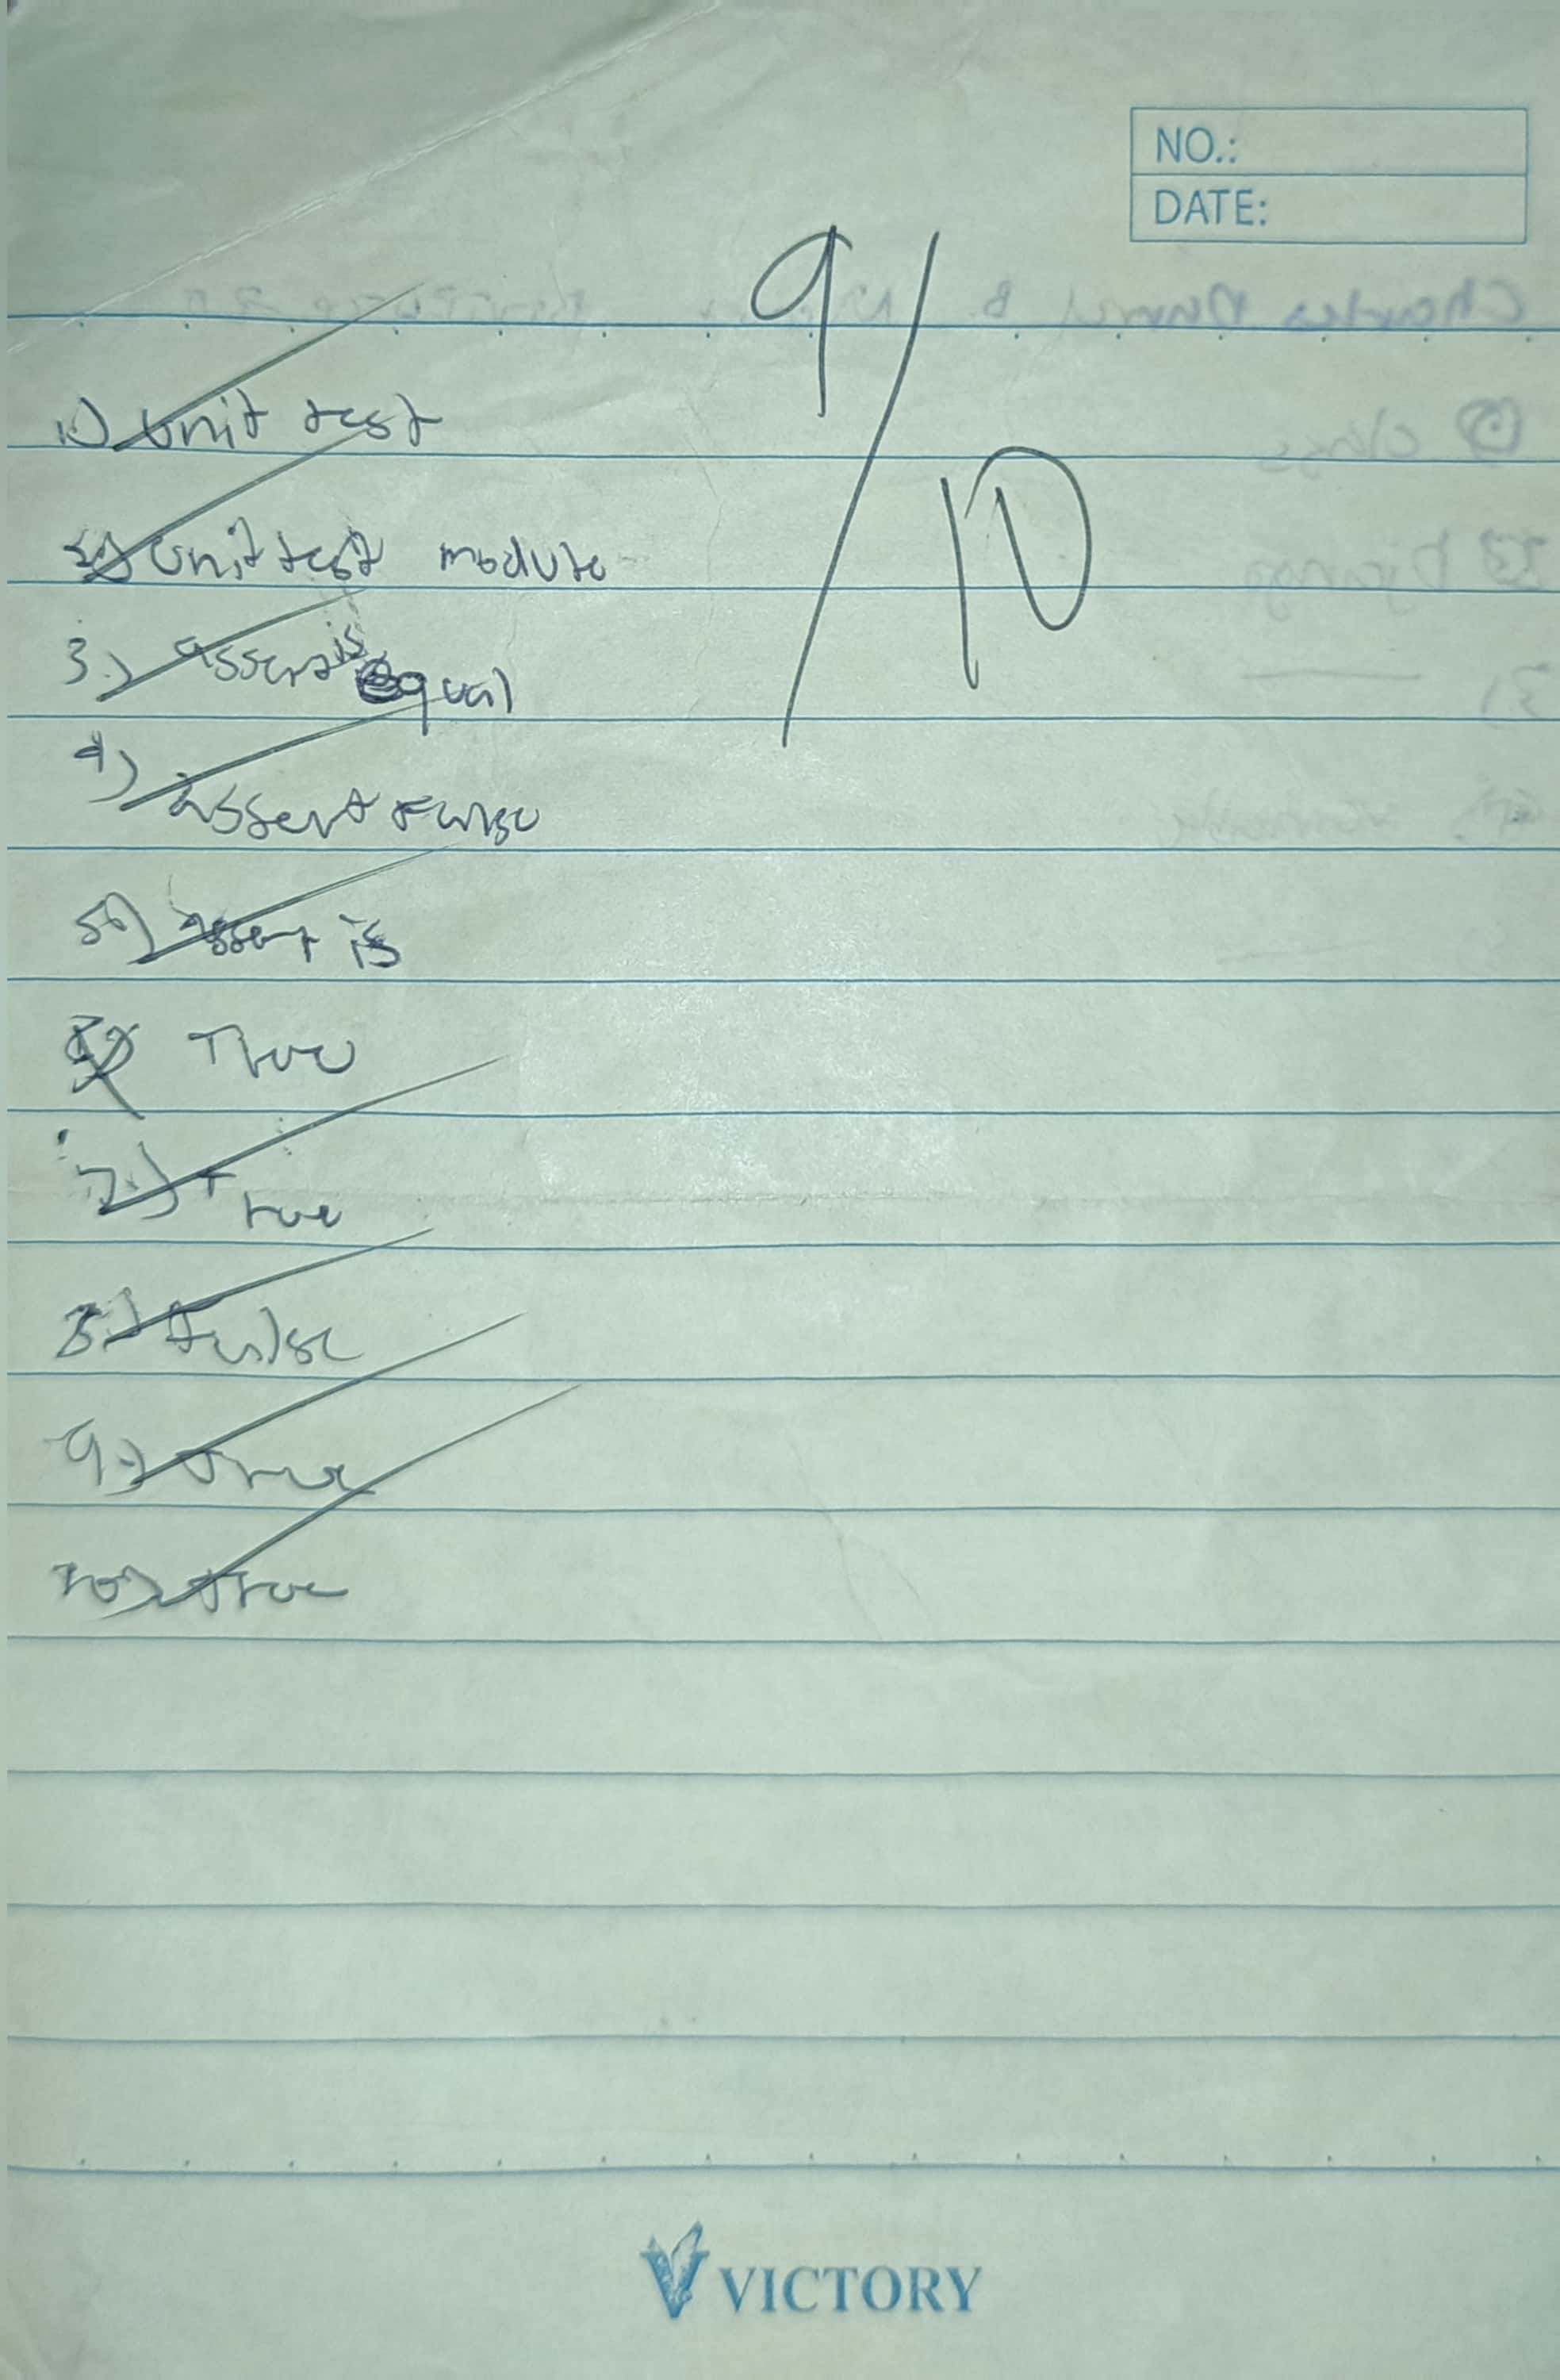 NO.:
DATE:
9/10
1.) Unit test
2.) Unit test module
3.) assert is equal
4) assert False
5.) Assert is
True
7.) True
8.) False
9.) True
10.) True
VICTORY